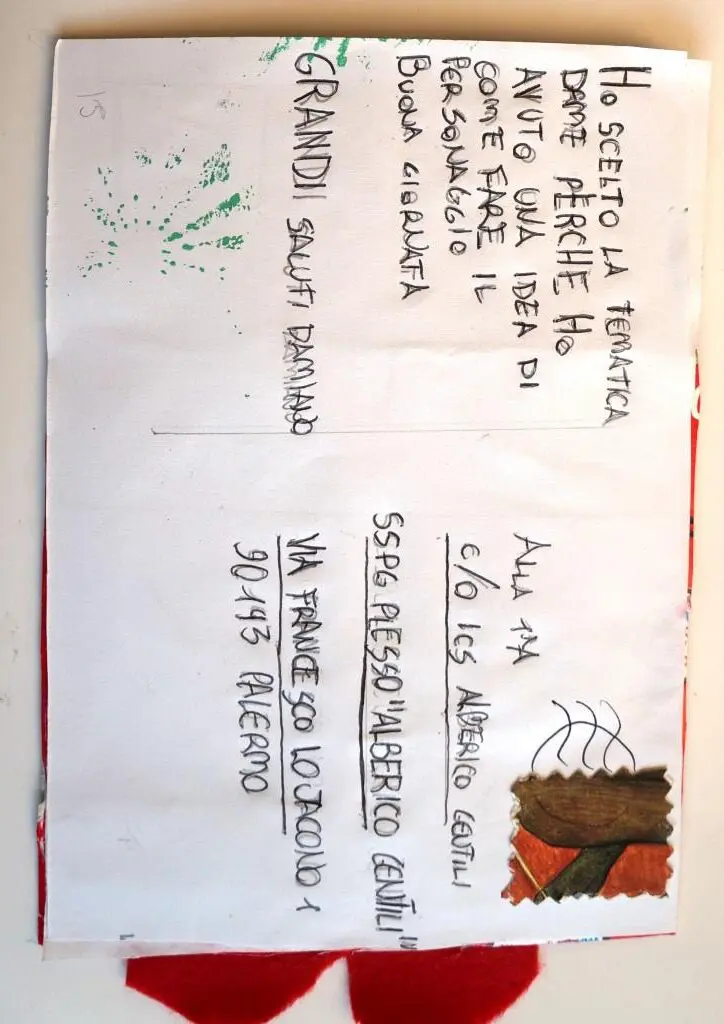 HO SCELTO LA TEMATICA
DAME PERCHE HO
AVUTO UNA IDEA DI
COME FARE IL
PERSONAGGIO
BUONA GIORNATA
GRANDII SALUTI DAMIANO
15
ALLA 1ªA
C/O ICS ALBERICO GENTILI
SSPG PLESSO "ALBERICO GENTILI"
VIA FRANCESCO LO JACONO 1
90143 PALERMO